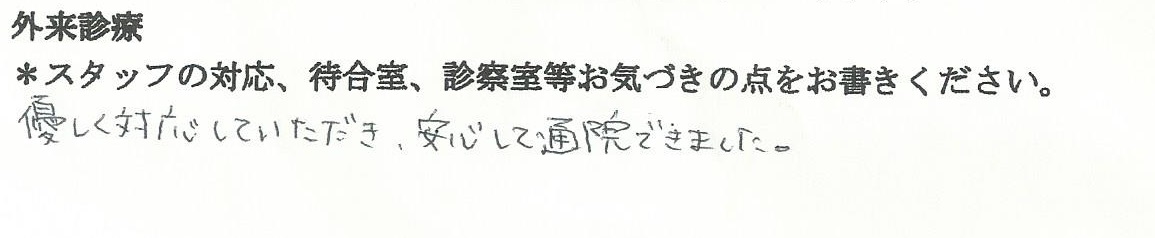 外来診療
＊スタッフの対応、待合室、診察室等お気づきの点をお書きください。
優しく対応していただき、安心して通院できました。